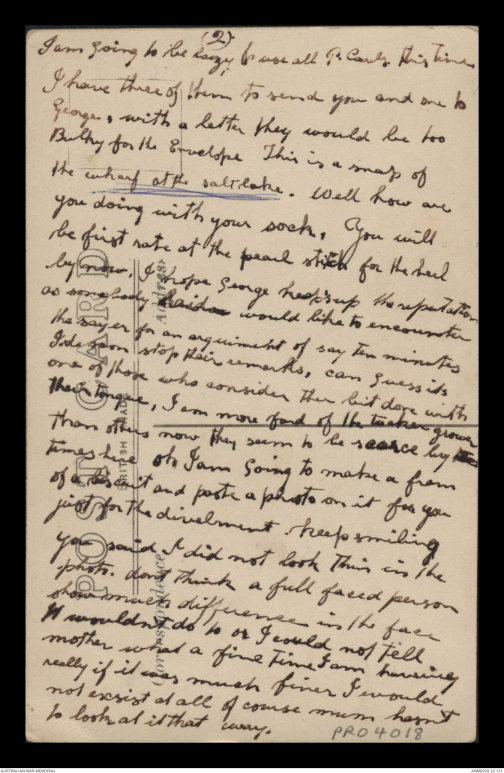 (2)
I am going to be lazy & use all P. Cards this time
I have three of them to send you and one to
George, with a letter they would be too
Bulky for the Envelope This is a snap of
the wharf at the salt lake. Well how are
you doing with your sock, You will
be first rate at the pearl stitch for the heel
by now. I hope George keeps up the reputation
as somebody would like to encounter
the sayer for an arguiment of say ten minutes
I'de soon stop their remarks, can guess its
one of those who consider their bit done with
their tongue, I am more fond of the grower
than others now they seem to be scarce by
times here oh I am going to make a fram
of a biscuit and paste a photo on it for you
just for the divelment. keep smiling
You said I did not look thin in the
photo. dont think a full faced person
shows much difference in the face
It wouldnt do to or I could not tell
mother what a fine time I am having
really if it was much finer I would
not exsist at all of course mum hasnt
to look at it that way.
PRO4018
POST CARD
BRITISH MADE
Correspondence
Address
AUSTRALIAN WAR MEMORIAL